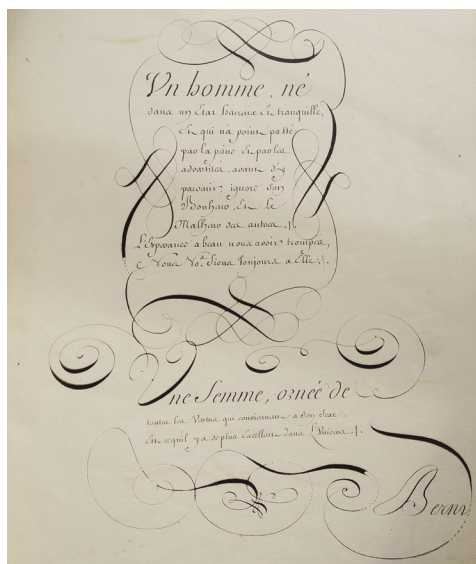 Un homme, né
dans un Etat heureux Et tranquille,
Et qui n'a point passé
par la peine Et par les
adversitéz, avant d'y
parvenir, ignore son
Bonheur, Et Le
Malheur des autres ./.
L'Esperance a beau nous avoir trompez,
Nous No.s fions toujours a Elle ./.
Une femme, ornée de
toutes les Vertus qui conviennent a son sexe,
Est ce qu'il y a de plus Excellent dans L'Univers ./.